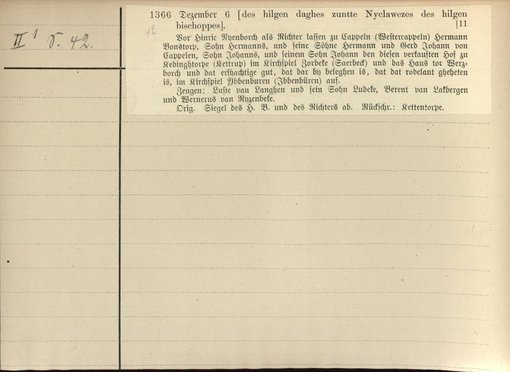 1366 Dezember 6 [des hilgen daghes zuntte Nyclawezes des hilgen
bischoppes]. [11
II¹ S. 42.
Vor Hinric Nyenborch als Richter lassen zu Cappeln (Westercappeln) Hermann
Bonstorp, Sohn Hermanns, und seine Söhne Hermann und Gerd Johann von
Cappelen, Sohn Johanns, und seinem Sohn Johann den diesen verkauften Hof zu
Kedinghtorpe (Kettrup) im Kirchspiel Zorbeke (Saerbeck) und das Haus tor Werz-
borch und dat erfhachtige gut, dat dar by beleghen is, dat dat rodelant gheheten
is, im Kirchspiel Ybbenburen (Ibbenbüren) auf.
Zeugen: Lusse van Langhen und sein Sohn Ludeke, Berent van Lakbergen
und Wernerus van Ruzenbeke.
Orig. Siegel des H. B. und des Richters ab. Rückschr.: Kettentorpe.